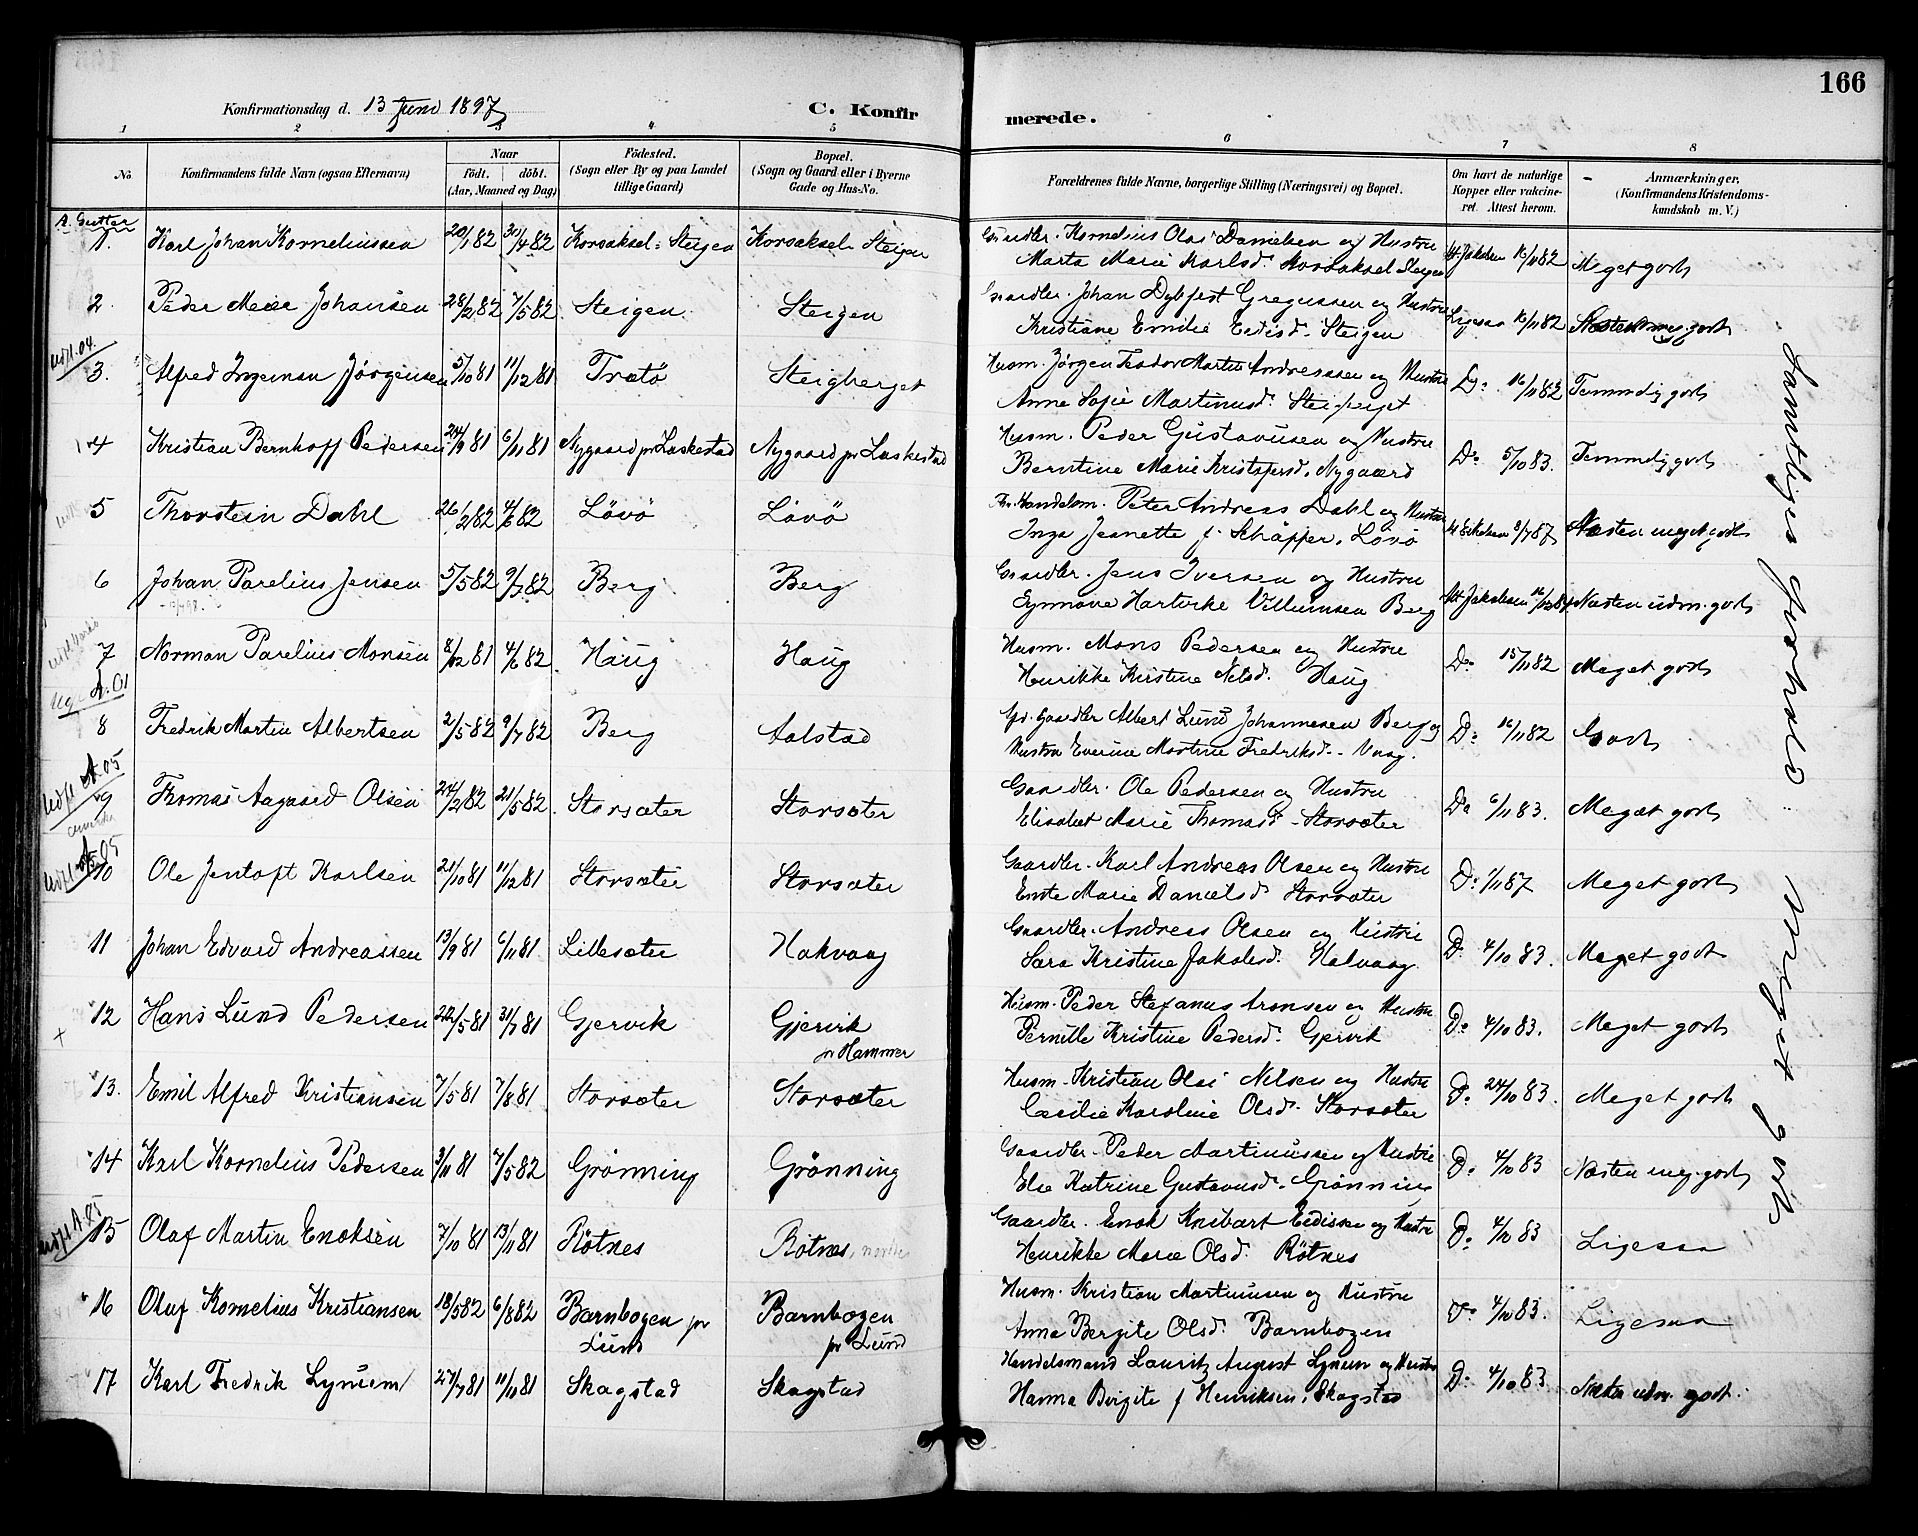 166
Konfirmationsdag d. 13 Juni 1897
C. Konfirmerede.
1 2 3 4 5 6 7 8
No
Konfirmandens fulde Navn (ogsaa Efternavn)
Naar
födt. döbt.
(Aar, Maaned og Dag)
Födested.
(Sogn eller By og paa Landet
tillige Gaard)
Bopæl.
(Sogn og Gaard eller i Byerne
Gade og Hus-No.
Forældrenes fulde Navne, borgerlige Stilling (Næringsvei) og Bopæl.
Om havt de naturlige
Kopper eller vakcine-
ret. Attest herom.
Anmærkninger.
(Konfirmandens Kristendoms-
kundskab m. V.)
A. Gutter
1. Karl Johan Korneliussen 20/1 82 30/4 82 Korsaksel - Steigen Korsaksel - Steigen Gaardbr. Kornelius Olai Danielsen og Hustru
Marta Marie Karlsd. Korsaksel Steigen Att. Jakobsen 16/11 82 Meget godt
2. Peder Meier Johansen 28/2 82 7/5 82 Steigen Steigen Gaardbr. Johan Dybfest Gregussen og Hustru
Kristiane Emilie Eedisd. Steigen Ligesaa 16/11 82 Næsten meg. godt
udfl. 04.
3. Alfred Ingeman Jörgensen 5/10 81 11/12 81 Tratö Steigberget Husm. Jörgen Teodor Martin Andreassen og Hustru
Anne Sofie Martinusd. Steigberget Do 16/11 82 Temmelig godt
4 Kristian Bernhoff Pedersen 24/9 81 6/11 81 Nygaard pr Laskestad Nygaard pr Laskestad Husm. Peder Gustavusen og Hustru
Berntine Marie Kristofersd. Nygaard Do 5/10 83. Temmelig godt
5 Thorstein Dahl 26/2 82 4/6 82 Lövö Lövö Handelsm. Peter Andreas Dahl og Hustru
Inga Jeanette f. Schäffer, Lövö 8/7 87 Næsten meget godt
6 Johan Parelius Jensen 5/5 82 9/7 82 Berg Berg Gaardbr. Jens Iversen og Hustru
Hartvike Villumsen Berg Att. Jakobsen Næsten udm. godt
7 Norman Parelius Monsen 8/12 81 4/6 82 Haug Haug Husm. Mons Pedersen og Hustru
Henrikke Kirstine Nilsd. Haug Do 15/11 82 Meget godt
A. 01
8 Fredrik Martin Albertsen 2/5 82 9/7 82 Berg Aalstad Gaardbr Albert Lund Johannesen Berg og
Hustru Everine Martine Fredriksd. Vaag. Do 16/11 82 Godt
udfl A. 05
9 Thomas Aagaard Olsen 24/2 82 21/5 82 Storsæter Storsæter Gaardbr. Ole Pedersen og Hustru
Elisabet Marie Thomasd. Storsæter Do 6/11 83. Meget godt
udfl. A. 05
10 Ole Jentoft Karlsen 21/10 81 11/12 81 Storsæter Storsæter Gaardbr. Karl Andreas Olsen og Hustru
Marie Danielsd. Storsæter Do 1/11 87 Meget godt
11 Johan Edvard Andreassen 13/9 81 6/11 81 Lillesæter Hakvaag Gaardbr. Andreas Olsen og Hustru
Sara Kristine Jakobsd. Do 4/10 83. Meget godt
12 Hans Lund Pedersen 22/5 81 31/7 81 Gjervik Gjervik
pr Hammer Husm. Peder Stefanus Aronsen og Hustru
Pernille Kristine Pedersd. Gjervik Do 4/10 83. Meget godt
+
13. Emil Alfred Kristiansen 7/5 81 7/8 81 Storsæter Storsæter Husm. Kristian Olai Nilsen og Hustru
Cæcilie Karoline Olsd. Storsæter Do 24/10 83. Meget godt
14 Karl Kornelius Pedersen 3/11 81 7/5 82 Grönning Grönning Gaardbr. Peder Martinussen og Hustru
Else Katrine Gustavusd. Grönning Do 4/10 83 Næsten meg. godt
udfl A. 05
15 Olaf Martin Enoksen 7/10 81 13/11 81 Rötnes Rötnes, Gaardbr. Enok Knibart Eedissen og Hustru
Henrikke Marie Olsd. Rötnes Do 4/10 83 Ligesaa
16 Oluf Kornelius Kristiansen 18/5 82 6/8 82 Barnbogen pr
Lund Barnbogen
pr Lund Husm. Kristian Martinusen og Hustru
Anna Bergite Olsd. Barnbogen Do 4/10 83. Ligesaa
17 Karl Fredrik Lynum 27/7 81 11/11 81 Skagstad Skagstad Handelsmand Lauritz August Lynum og Hustru
Hanna Birgite f Henriksen, Skagstad Do 4/10 83. Næsten udm. godt.
Samtliges Forhold Meget godt